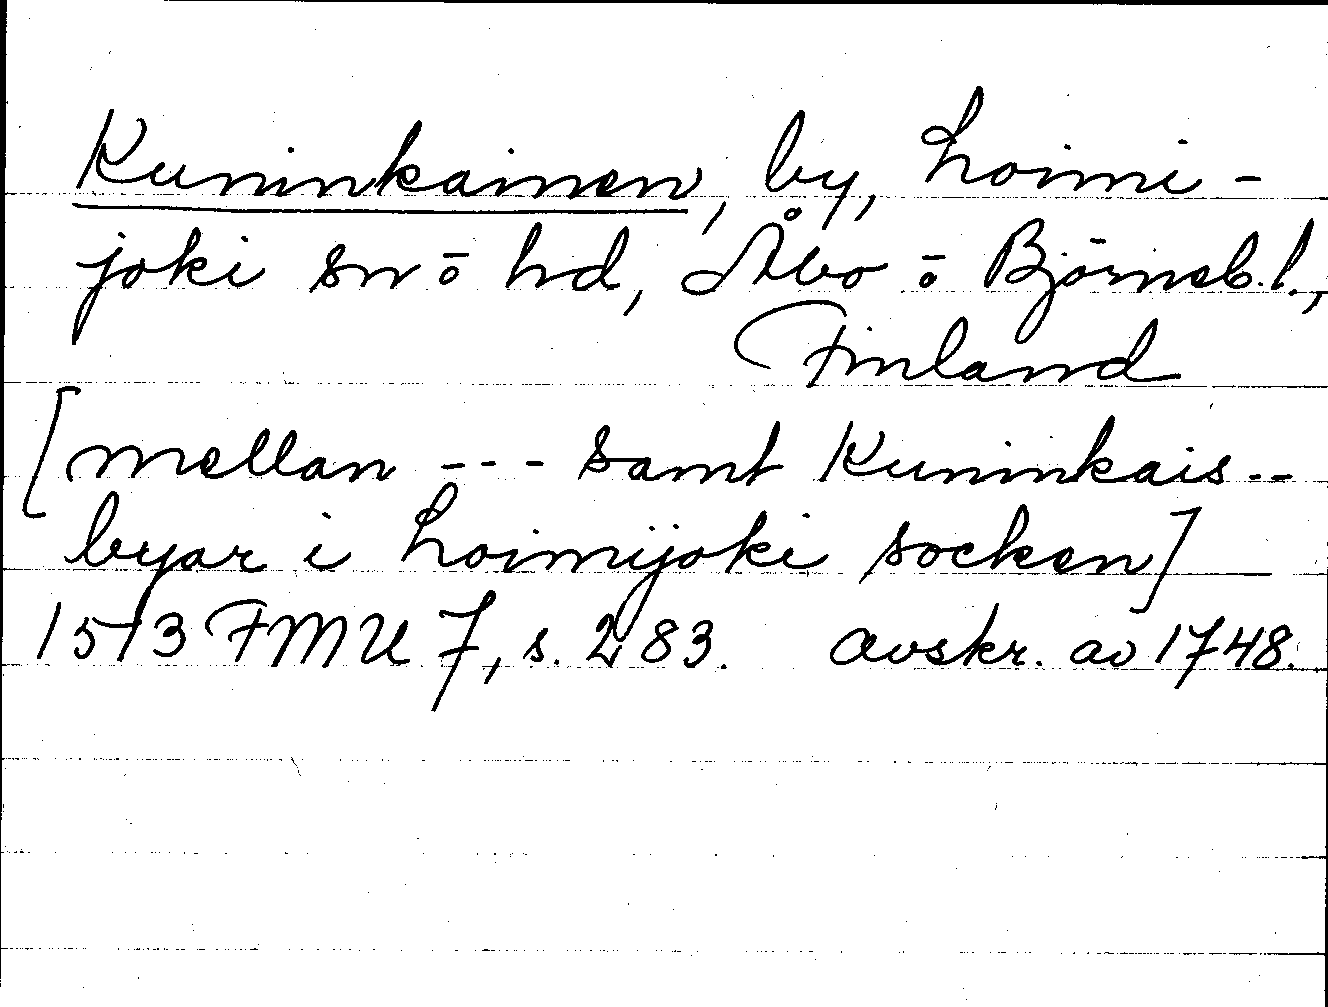 Kuninkainen, by, Loimi-
joki sn o hd, Åbo o Björneb.l.,
Finland
[mellan --- samt Kuninkais --
byar i Loimijoki socken]
1513 FMU 7, s. 283. avskr. av 1748.